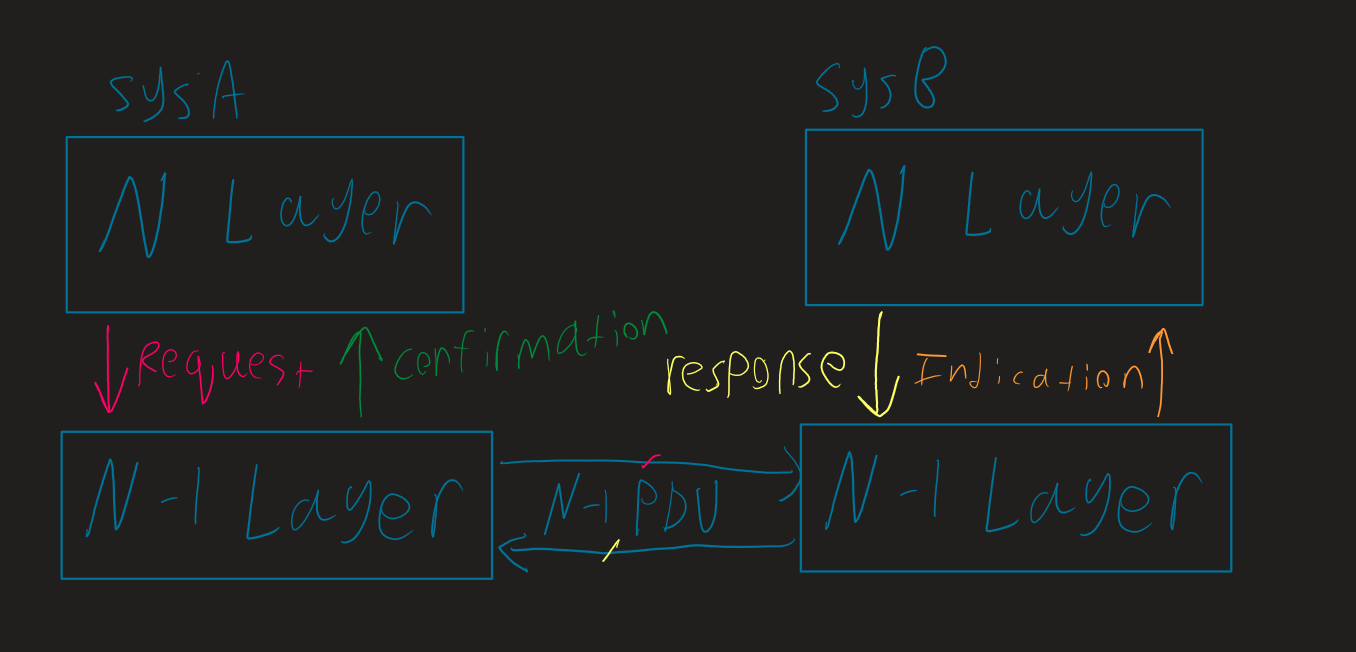 sysA
sysB
N Layer
N Layer
Request
confirmation
response
Indication
N-1 Layer
N-1 PDU
N-1 Layer